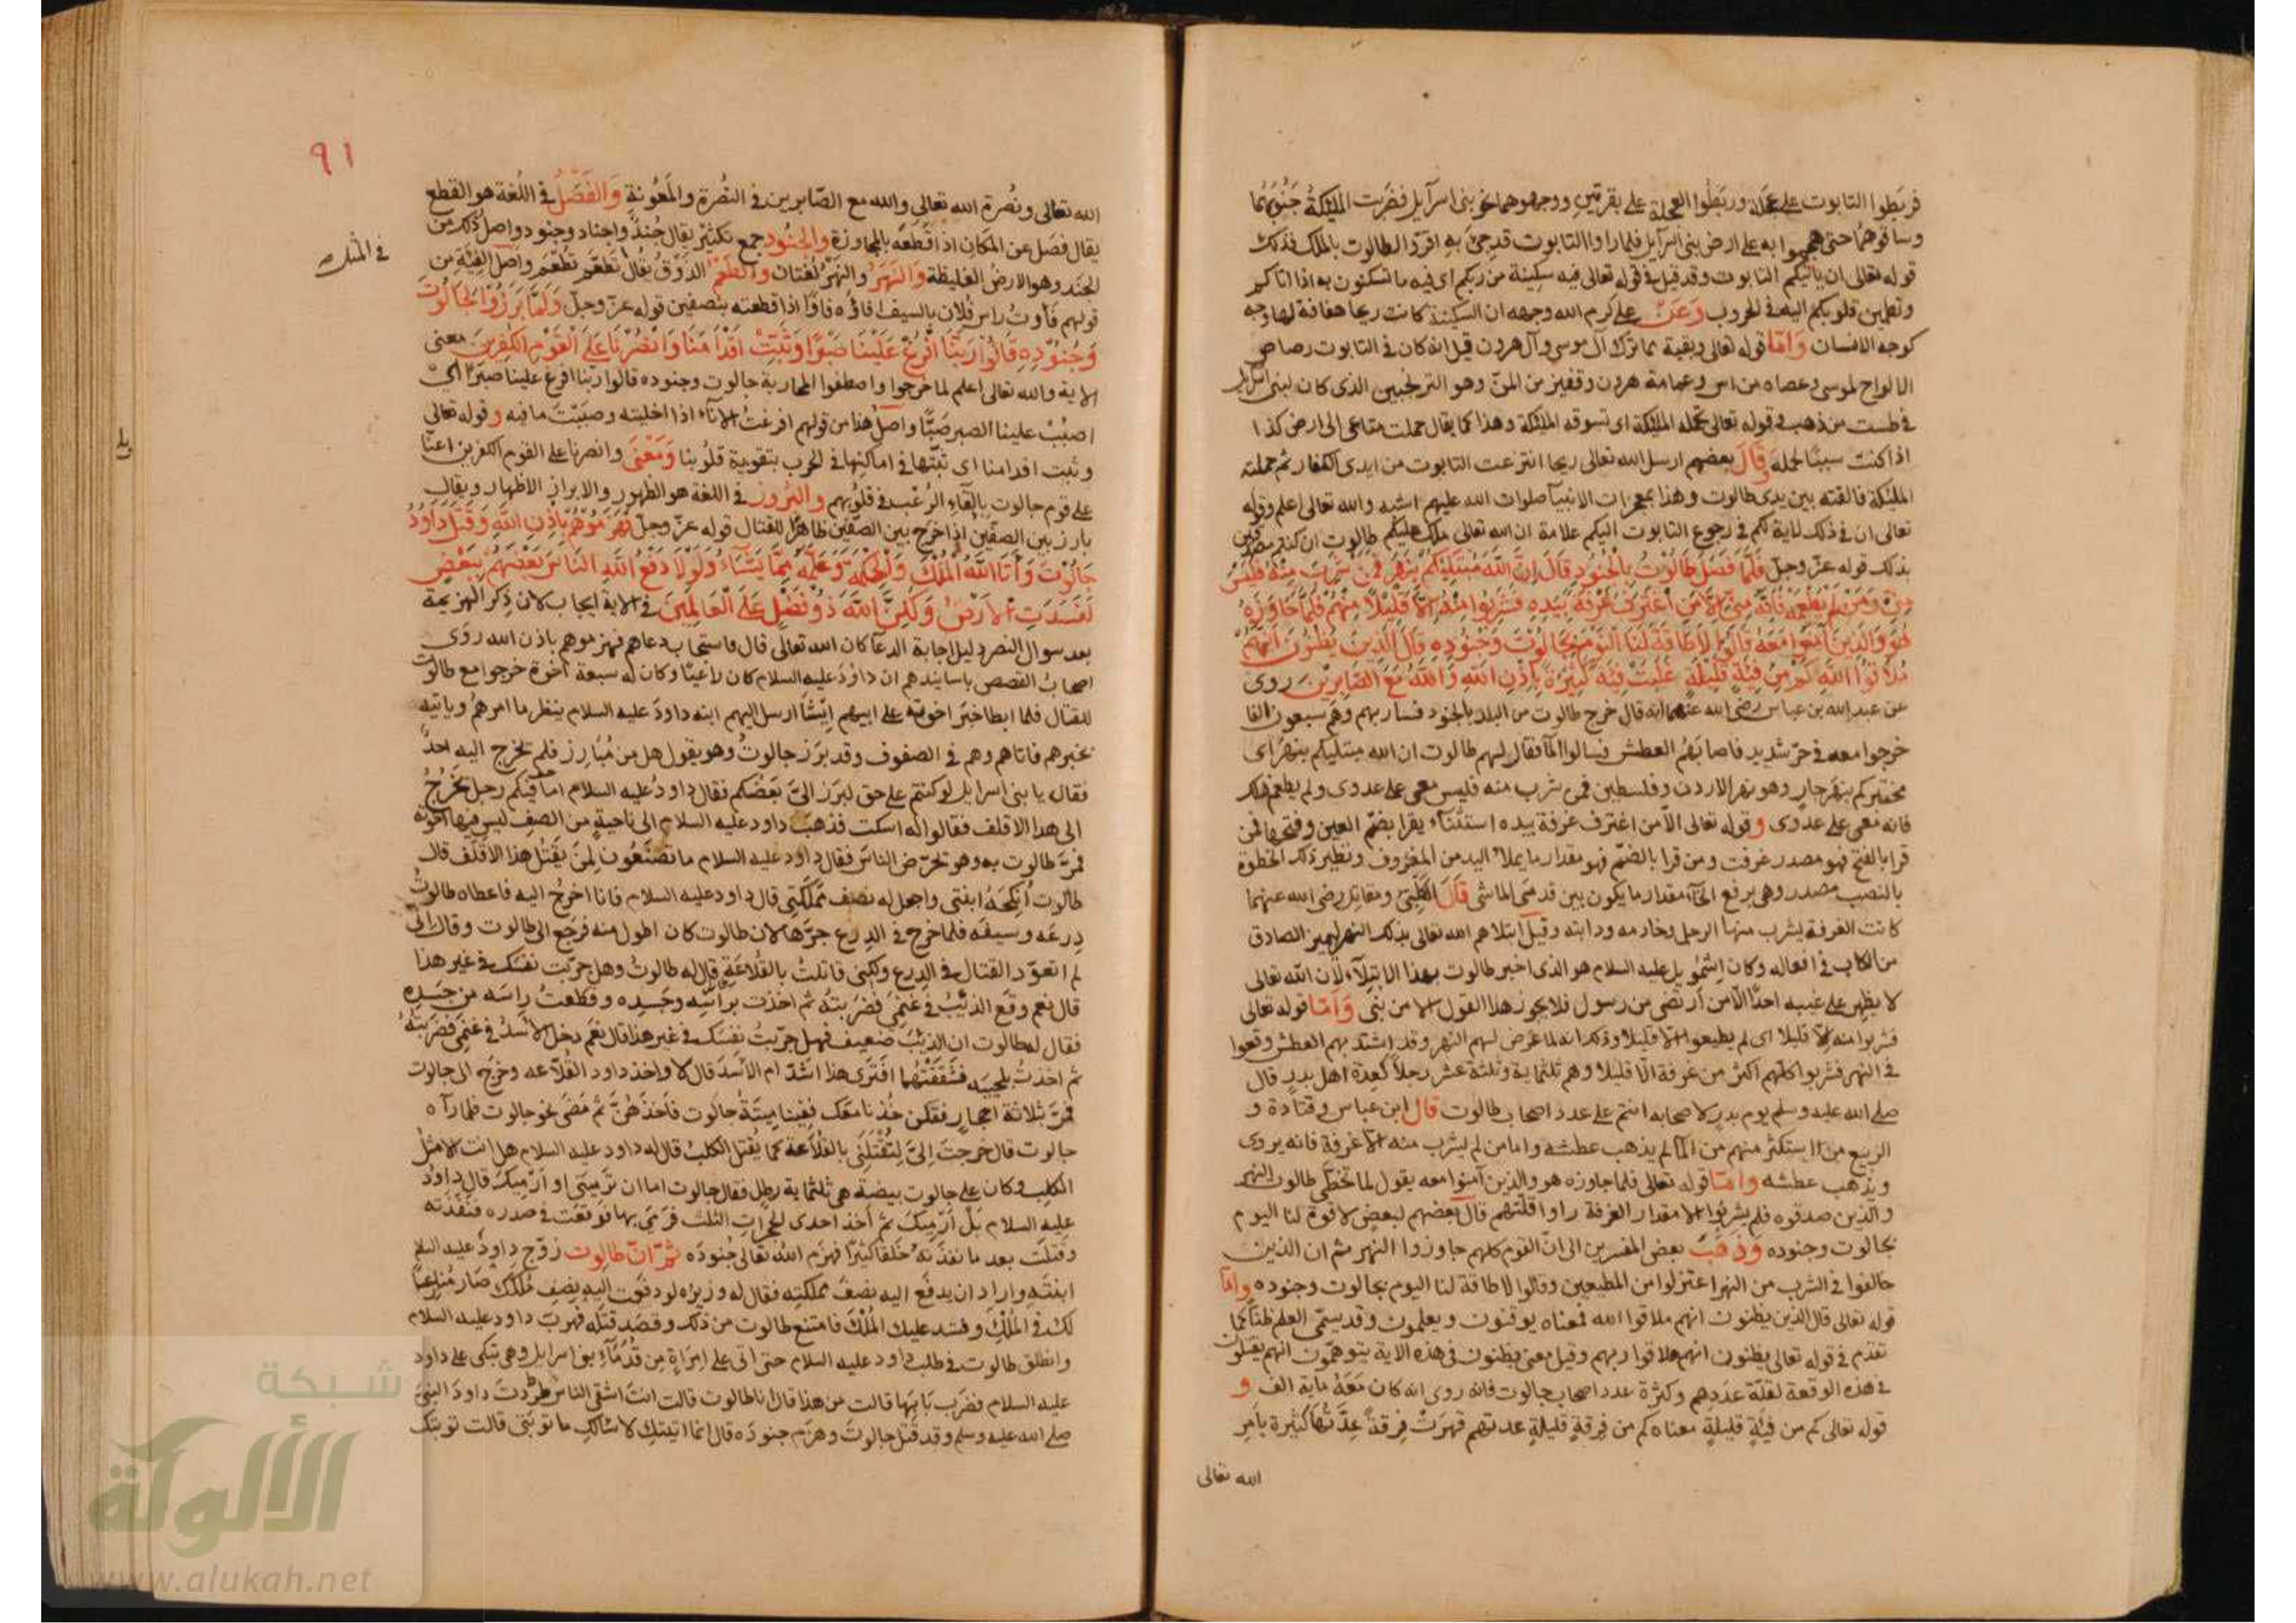 فربطوا التابوت على عجلة وربطوا العجلة على بقرتين ووجهوهما نحو بنى اسرآيل فضربت الملئكة جنوبهما
وساقوهما حتى هجموا به على ارض بنى اسرآيل فلما راوا التابوت قد جئ به اقروا لطالوت بالملك فذلك
قوله تعالى ان ياتيكم التابوت وقد قيل فى قوله تعالى فيه سكينة من ربكم اى فيه ما تسكنون به اذا اتاكم
وتطمئن قلوبكم اليه فى الحروب وعن على كرم الله وجهه ان السكينة كانت ريحا هفافة لها وجه
كوجه الانسان واما قوله تعالى وبقية مما ترك آل موسى وآل هرون قيل انه كان فى التابوت رضاض
الالواح لموسى وعصاه من اس وعمامة هرون وقفيز من المن وهو الترنجبين الذى كان لبنى اسرآيل
فى طست من ذهب وقوله تعالى تحمله الملئكة اى تسوقه الملئكة وهذا كما يقال حملت متاعى الى ارض كذا
اذا كنت سببا لحمله وقال بعضهم ارسل الله تعالى ريحا انتزعت التابوت من ايدى الكفار ثم حملته
الملئكة فالقته بين يدى طالوت وهذا بمعجزات الانبيآ صلوات الله عليهم اشبه والله تعالى اعلم وقوله
تعالى ان فى ذلك لاية لكم فى رجوع التابوت اليكم علامة ان الله تعالى ملك عليكم طالوت ان كنتم مصدقين
بذلك قوله عز وجل فلما فصل طالوت بالجنود قال ان الله مبتليكم بنهر فمن شرب منه فليس
منى ومن لم يطعمه فانه منى الا من اغترف غرفة بيده فشربوا منه الا قليلا منهم فلما جاوزه
هو والذين آمنوا معه قالوا لا طاقة لنا اليوم بجالوت وجنوده قال الذين يظنون انهم
ملاقوا الله كم من فئة قليلة غلبت فئة كثيرة باذن الله والله مع الصابرين روى
عن عبد الله بن عباس رضى الله عنهما انه قال خرج طالوت من البلد بالجنود فسار بهم وهم سبعون الفا
خرجوا معه فى حر شديد فاصابهم العطش فسالوا المآ فقال لهم طالوت ان الله مبتليكم بنهر اى
مختبركم بنهر جار وهو نهر الاردن وفلسطين فمن شرب منه فليس معى على عدوى ولم يطعم
فانه معى على عدوى وقوله تعالى الا من اغترف غرفة بيده استثنآء يقرا بضم العين وفتحها فمن
قرا بالفتح فهو مصدر غرفت ومن قرا بالضم فهو مقدار ما يملا اليد من المغروف ونظير ذلك الخطوة
بالنصب مصدر وهى برفع الخآء مقدار ما يكون بين قدمى الماشى قال الكلبى ومقاتل رضى الله عنهما
كانت الغرفة يشرب منها الرجل وخادمه ودابته وقيل ابتلاهم الله تعالى بذلك النهر ليميز الصادق
من الكاذب فى افعاله وكان اشمويل عليه السلام هو الذى اخبر طالوت بهذا الابتلآء لان الله تعالى
لا يظهر على غيبه احدا الا من ارتضى من رسول فلا يجوز هذا القول الا من نبى واما قوله تعالى
فشربوا منه الا قليلا اى لم يطيعوا الا قليلا وذلك انه لما عرض لهم النهر وقد اشتد بهم العطش وقعوا
فى النهر فشربوا كلهم اكثر من غرفة الا قليلا وهم ثلثماية وثلثة عشر رجلا كعدة اهل بدر قال
صلى الله عليه وسلم يوم بدر لاصحابه انتم على عدد اصحاب طالوت قال ابن عباس وقتادة و
الربيع من استكثر منهم من المآ لم يذهب عطشه واما من لم يشرب منه الا غرفة فانه يروى
ويذهب عطشه واما قوله تعالى فلما جاوزه هو والذين آمنوا معه يقول لما تخطى طالوت النهر
والذين صدقوه فلم يشربوا الا مقدار الغرفة راوا قلتهم قال بعضهم لبعض لا قوة لنا اليوم
بجالوت وجنوده وذهب بعض المفسرين الى ان القوم كلهم جاوزوا النهر ثم ان الذين
خالفوا فى الشرب من النهر اعتزلوا من المطيعين وقالوا لا طاقة لنا اليوم بجالوت وجنوده واما
قوله تعالى قال الذين يظنون انهم ملاقوا الله فمعناه يوقنون ويعلمون وقد يسمى العلم ظنا كما
تقدم فى قوله تعالى يظنون انهم ملاقوا ربهم وقيل معنى يظنون فى هذه الاية يتوهمون انهم يقتلون
فى هذه الوقعة لقلة عددهم وكثرة عدد اصحاب جالوت فانه روى انه كان معه ماية الف و
قوله تعالى كم من فئة قليلة معناه كم من فرقة قليلة عدتهم قهرت فرقة عدتها كثيرة بامر
الله تعالى
٩١
الله تعالى ونصرة الله تعالى والله مع الصابرين فى النصرة والمعونة والفصل فى اللغة هو القطع
يقال فصل عن المكان اذا قطعه بالمجاوزة والجنود جمع تكثير يقال جند واجناد وجنود واصل ذلك من
الجند وهو الارض الغليظة والنهر والنهر لغتان والطعم الذوق يقال تطعم تطعم واصل الفئة من
قولهم فأوت راس فلان بالسيف افاؤه فاوا اذا قطعته بنصفين قوله عز وجل ولما برزوا لجالوت
وجنوده قالوا ربنا افرغ علينا صبرا وثبت اقدامنا وانصرنا على القوم الكفرين معنى
الاية والله تعالى اعلم لما خرجوا واصطفوا لمحاربة جالوت وجنوده قالوا ربنا افرغ علينا صبرا اى
اصبب علينا الصبر صبا واصل هذا من قولهم افرغت الانآء اذا اخليته وصببت ما فيه وقوله تعالى
وثبت اقدامنا اى ثبتها فى اماكنها فى الحرب بتقوية قلوبنا ومعنى وانصرنا على القوم الكفرين اعنا
على قوم جالوت بالقآء الرعب فى قلوبهم والبروز فى اللغة هو الظهور والابراز الاظهار ويقال
بارز بين الصفين اذا خرج بين الصفين ظاهرا للقتال قوله عز وجل فهزموهم باذن الله وقتل داود
جالوت وآتاه الله الملك والحكمة وعلمه مما يشآء ولولا دفع الله الناس بعضهم ببعض
لفسدت الارض ولكن الله ذو فضل على العالمين فى الاية ايجاب لان ذكر الهزيمة
بعد سوال النصر دليل اجابة الدعآ كان الله تعالى قال فاستجاب دعاهم فهزموهم باذن الله روى
اصحاب القصص باسانيدهم ان داود عليه السلام كان راعيا وكان له سبعة اخوة خرجوا مع طالوت
للقتال فلما ابطا خبر اخوته على ابيهم ايشا ارسل اليهم ابنه داود عليه السلام ينظر ما امرهم وياتيه
بخبرهم فاتاهم وهم فى الصفوف وقد برز جالوت وهو يقول هل من مبارز فلم يخرج اليه احد
فقال يا بنى اسرايل لو كنتم على حق لبرز الى بعضكم فقال داود عليه السلام اما فيكم رجل يخرج
الى هذا الاقلف فقالوا له اسكت فذهب داود عليه السلام الى ناحية من الصف ليس فيها اخوته
فمر طالوت به وهو يحرض الناس فقال داود عليه السلام ما تصنعون لمن يقتل هذا الاقلف قال
طالوت انكحه ابنتى واجعل له نصف مملكتى قال داود عليه السلام فانا اخرج اليه فاعطاه طالوت
درعه وسيفه فلما خرج فى الدرع جرها لان طالوت كان اطول منه فرجع الى طالوت وقال انى
لم اتعود القتال فى الدرع ولكنى قاتلت بالقلاعة قال له طالوت وهل جربت نفسك فى غير هذا
قال نعم وقع الذئب فى غنمى فضربته ثم اخذت براسه وجسده وقطعت راسه من جسده
فقال له طالوت ان الذئب ضعيف فهل جربت نفسك فى غير هذا قال نعم دخل الاسد فى غنمى فضربته
ثم اخذت بلحييه فشققتهما افترى هذا اشد ام الاسد قال لا واخذ داود القلاعه وخرج الى جالوت
فمر بثلاثة احجار فقلن خذنا معك ففينا ميتة جالوت فاخذهن ثم مضى نحو جالوت فلما رآه
جالوت قال خرجت الى لتقتلنى بالقلاعة كما يقتل الكلب قال له داود عليه السلام هل انت الا مثل
الكلب وكان على جالوت بيضة هى ثلثماية رطل فقال جالوت اما ان ترمينى او ارميك قال داود
عليه السلام بل ارميك ثم اخذ احدى الحجرات الثلث فرمى بها فوقعت فى صدره فنفذته
وقتلت بعد ما نفذته خلقا كثيرا فهزم الله تعالى جنوده ثم ان طالوت زوج داود عليه السلم
ابنته واراد ان يدفع اليه نصف مملكته فقال له وزيره لو دفعت اليه نصف ملكك صار منازعا
لك فى الملك وفسد عليك الملك فامتنع طالوت من ذلك وقصد قتله فهرب داود عليه السلام
وانطلق طالوت فى طلب داود عليه السلام حتى اتى على امراة من قدمآء بنى اسرايل وهى تبكى على داود
عليه السلام فضرب بابها قالت من هذا قال انا طالوت قالت انت اشقى الناس طردت داود النبى
صلى الله عليه وسلم وقد قتل جالوت وهزم جنوده قال انما اتيتك لاسالك ما توبتى قالت توبتك
شبكة
الألوكة
www.alukah.net